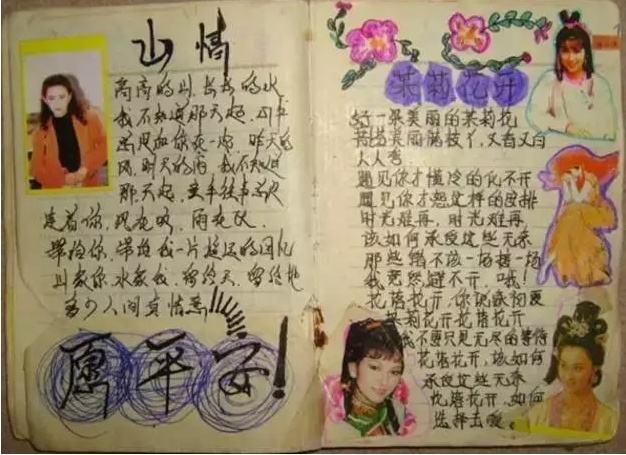 山情
高高的山,长长的水
我不知道那天起,
总是和你在一起,昨天的
风,明天的雨,我不知道
那天起,往事总是
连着你,风在吹,雨在飞
带给你,带给我一片遥远的回忆
山水,留给天,留给地
多少人间真情意
愿平安!
茉莉花开
好一朵美丽的茉莉花
芬芳美丽满枝丫,又香又白
人人夸
遇见你才懂冷的化不开
遇见你才怨这样的安排
时光难再,时光难再
该如何承受这些无奈
那些错不该一场接一场
我竟然避不开,哦!
花落花开,你说
茉莉花开花落花开
我不要只见无尽的等待
花落花开,该如何
承受这些无奈
花落花开,如何
选择去爱。